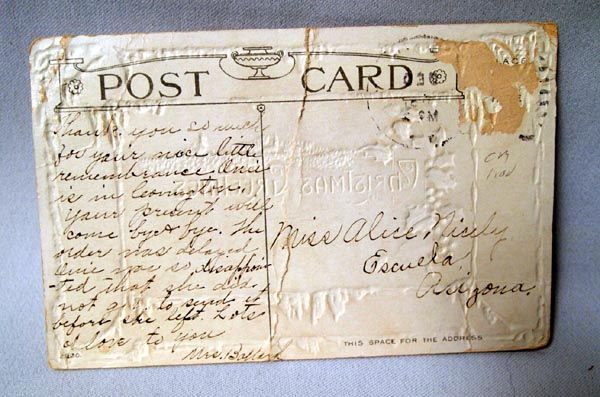 POST CARD
Thank you so much
for your nice little
remembrance
is in Covington.
Your present will
come bye & bye. The
order was delayed
was so disappoin-
ted that she did
not get to send it
before she left. Lots
of love to you
Mrs.
CHRISTMAS
Miss Alice Nicely
Escuela,
Arizona.
THIS SPACE FOR THE ADDRESS